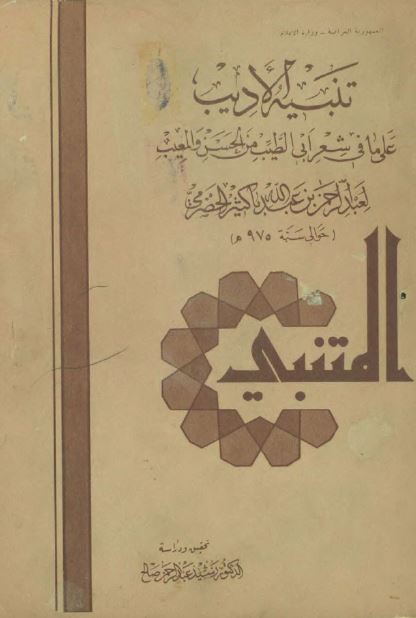 الجمهورية العراقية - وزارة الاعلام
تنبيه الأديب
على ما في شعر أبي الطيب من الحسن والمعيب
لعبد الرحمن بن عبد الله باكثير الحضرمي
(حوالي سنة ٩٧٥ هـ)
المتنبي
تحقيق ودراسة
الدكتور رشيد عبد الرحمن صالح